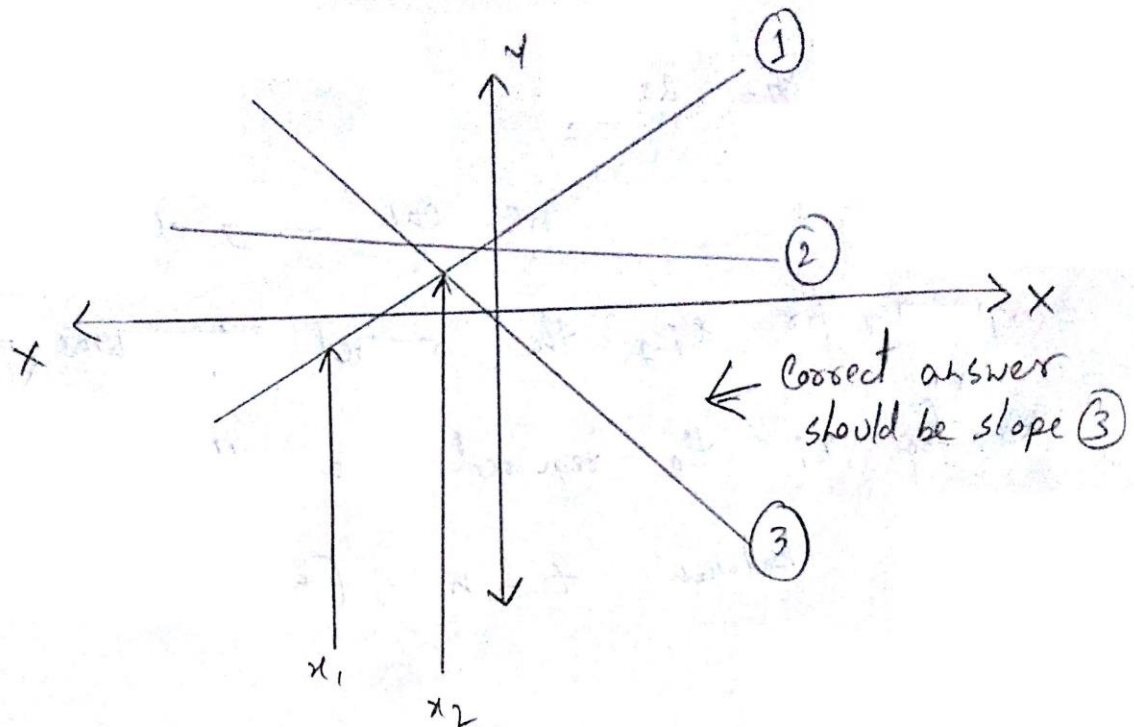 ①
Y
②
X
X
← Correct answer
should be slope ③
③
x₁
x₂